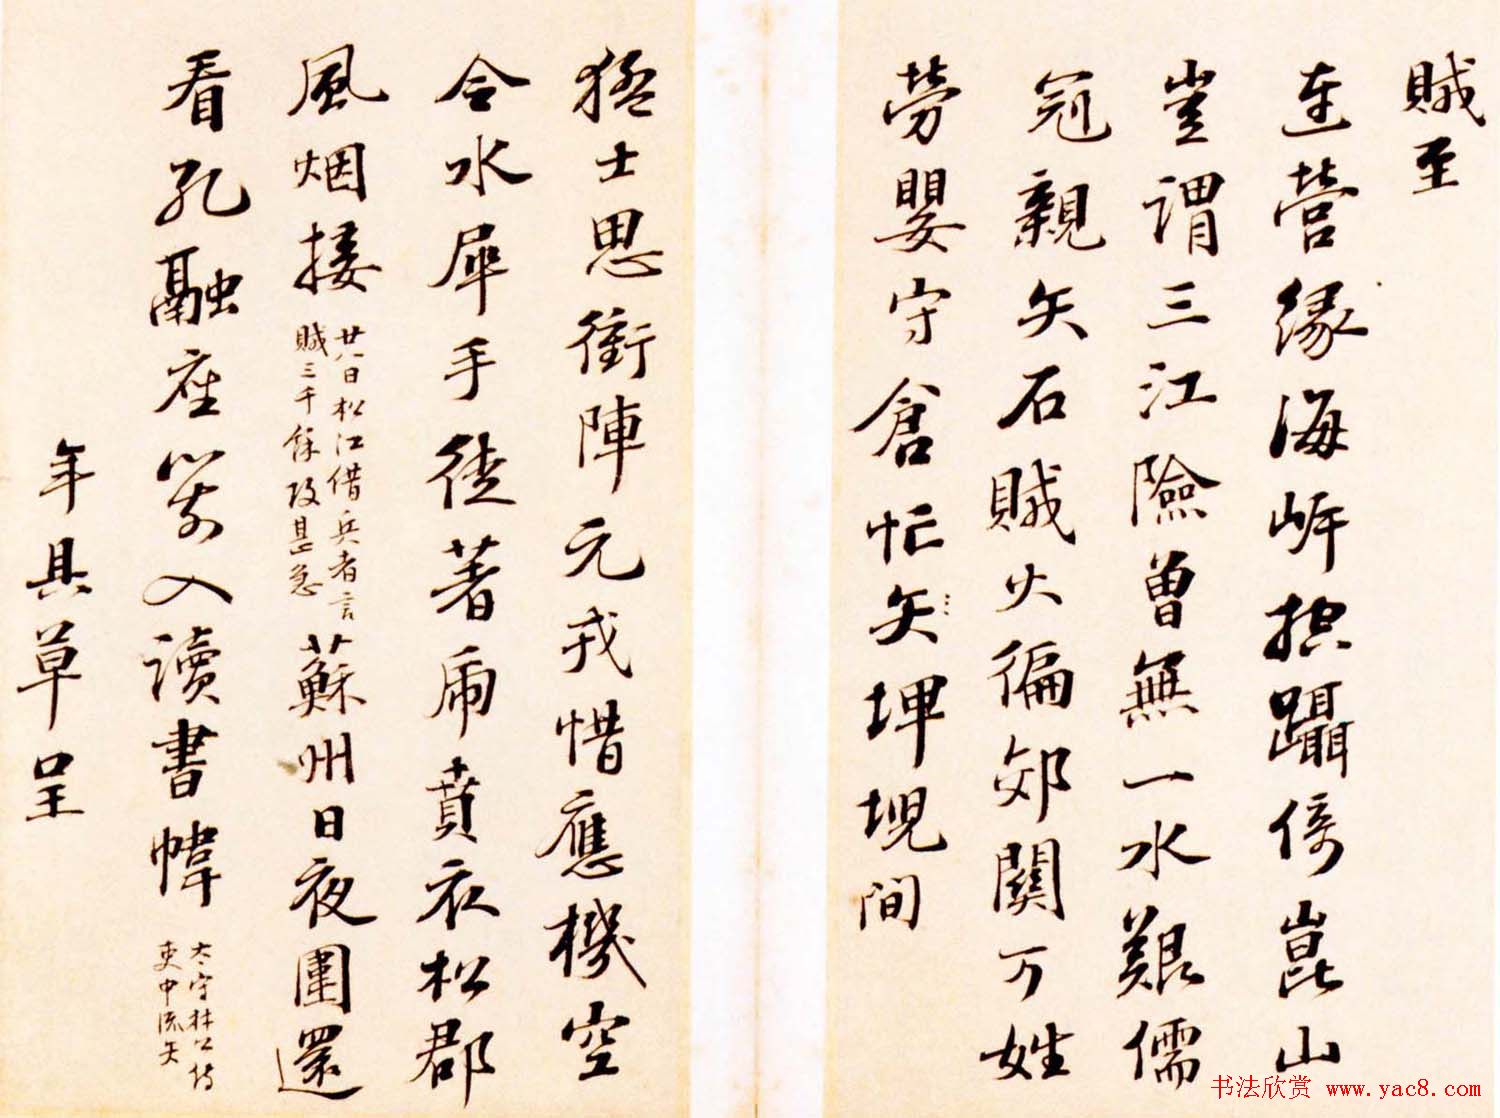 賊至
連營緣海岸抗躡傍崑山
豈謂三江險曾無一水艱儒
冠親矢石賊火徧郊關万姓
勞嬰守倉忙矢埤堄間
猛士思衝陣元戎惜應機空
令水犀手徒著虎賁衣松郡
風烟接
廿八日松江借兵者言
賊三千餘攻甚急
蘇州日夜圍還
看孔融座箭入讀書幃
太守林公持
吏中流矢
年具草呈
书法欣赏 www.yac8.com